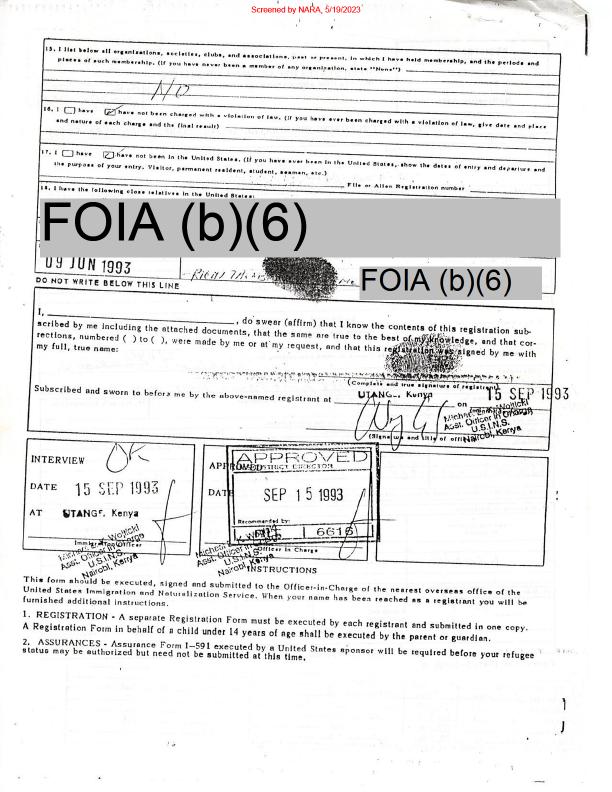 Screened by NARA, 5/19/2023
15. I list below all organizations, societies, clubs, and associations, past or present, in which I have held membership, and the periods and
places of such membership. (If you have never been a member of any organization, state "None")
NO
16. I have have not been charged with a violation of law. (If you have ever been charged with a violation of law, give date and place
and nature of each charge and the final result)
17. I have have not been in the United States. (If you have ever been in the United States, show the dates of entry and departure and
the purpose of your entry. Visitor, permanent resident, student, seaman, etc.)
File or Alien Registration number
18. I have the following close relatives in the United States:
FOIA (b)(6)
09 JUN 1993
FOIA (b)(6)
DO NOT WRITE BELOW THIS LINE
I, , do swear (affirm) that I know the contents of this registration sub-
scribed by me including the attached documents, that the same are true to the best of my knowledge, and that cor-
rections, numbered ( ) to ( ), were made by me or at my request, and that this registration was signed by me with
my full, true name:
(Complete and true signature of registrant)
Subscribed and sworn to before me by the above-named registrant at UTANGE, Kenya on 15 SEP 1993
Asst. Officer in Charge
U.S.I.N.S.
Nairobi, Kenya
(Signature and title of officer)
INTERVIEW OK
DATE 15 SEP 1993
AT UTANGE, Kenya
Immigration Officer
Asst. Officer in Charge
U.S.I.N.S.
Nairobi, Kenya
APPROVED
APPROVED
DISTRICT DIRECTOR
DATE SEP 15 1993
Recommended by:
6616
Officer in Charge
Asst. Officer in Charge
U.S.I.N.S.
Nairobi, Kenya
INSTRUCTIONS
This form should be executed, signed and submitted to the Officer-in-Charge of the nearest overseas office of the
United States Immigration and Naturalization Service. When your name has been reached as a registrant you will be
furnished additional instructions.
1. REGISTRATION - A separate Registration Form must be executed by each registrant and submitted in one copy.
A Registration Form in behalf of a child under 14 years of age shall be executed by the parent or guardian.
2. ASSURANCES - Assurance Form I-591 executed by a United States sponsor will be required before your refugee
status may be authorized but need not be submitted at this time.